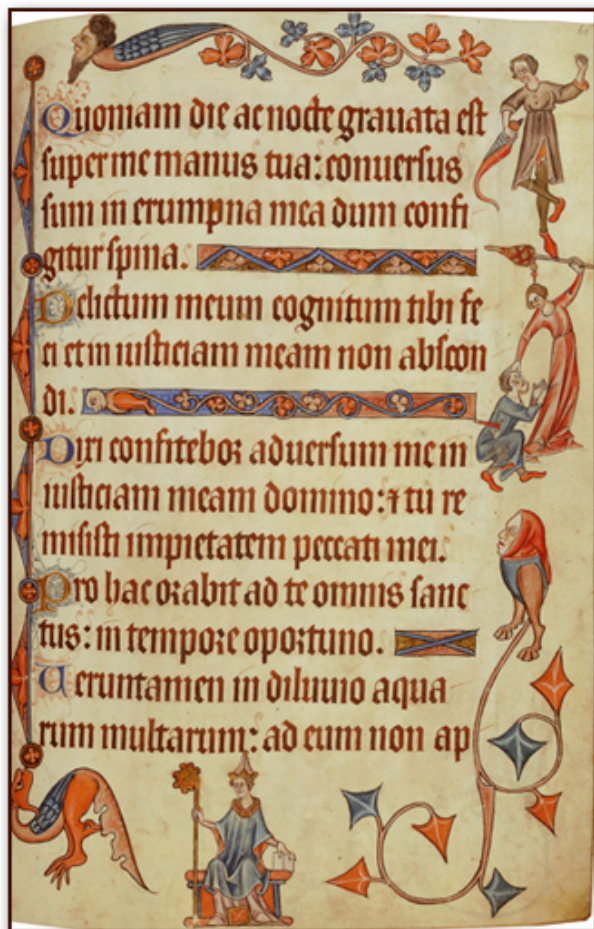 Quoniam die ac nocte grauata est
super me manus tua: conuersus
sum in erumpna mea dum confi
gitur spina.
Delictum meum cognitum tibi fe
ci et in iusticiam meam non abscon
di.
Dixi confitebor aduersum me in
iusticiam meam domino: ⁊ tu re
misisti impietatem peccati mei.
Pro hac orabit ad te omnis sanc
tus: in tempore oportuno.
Ueruntamen in diluuio aqua
rum multarum: ad eum non ap